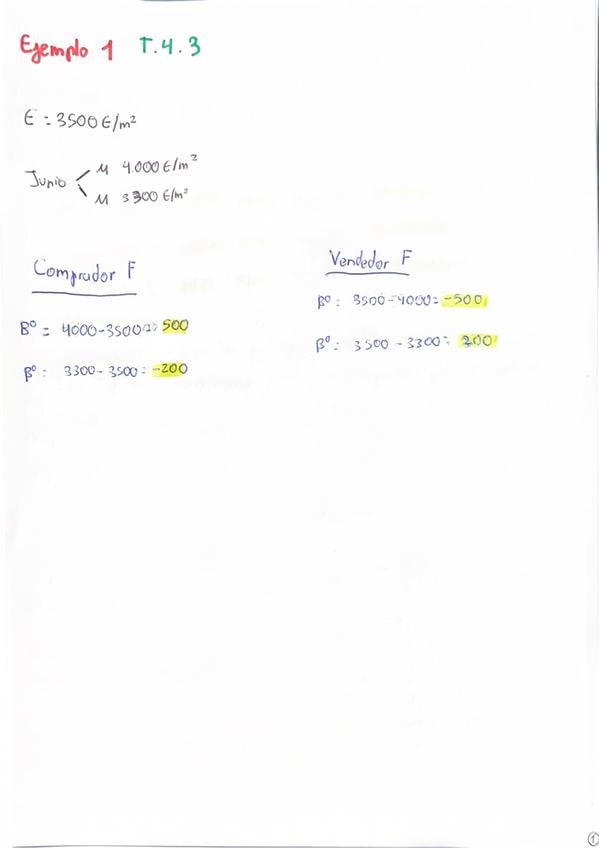 Ejemplo 1 T.4.3
E = 3500 €/m²
Junio
M 4.000 €/m²
M 3300 €/m²
Comprador F
Bº = 4000-3500 = 500
Bº: 3300 - 3500 = -200
Vendedor F
Bº: 3500 - 4000 = -500
Bº: 3500 - 3300 = 200
1